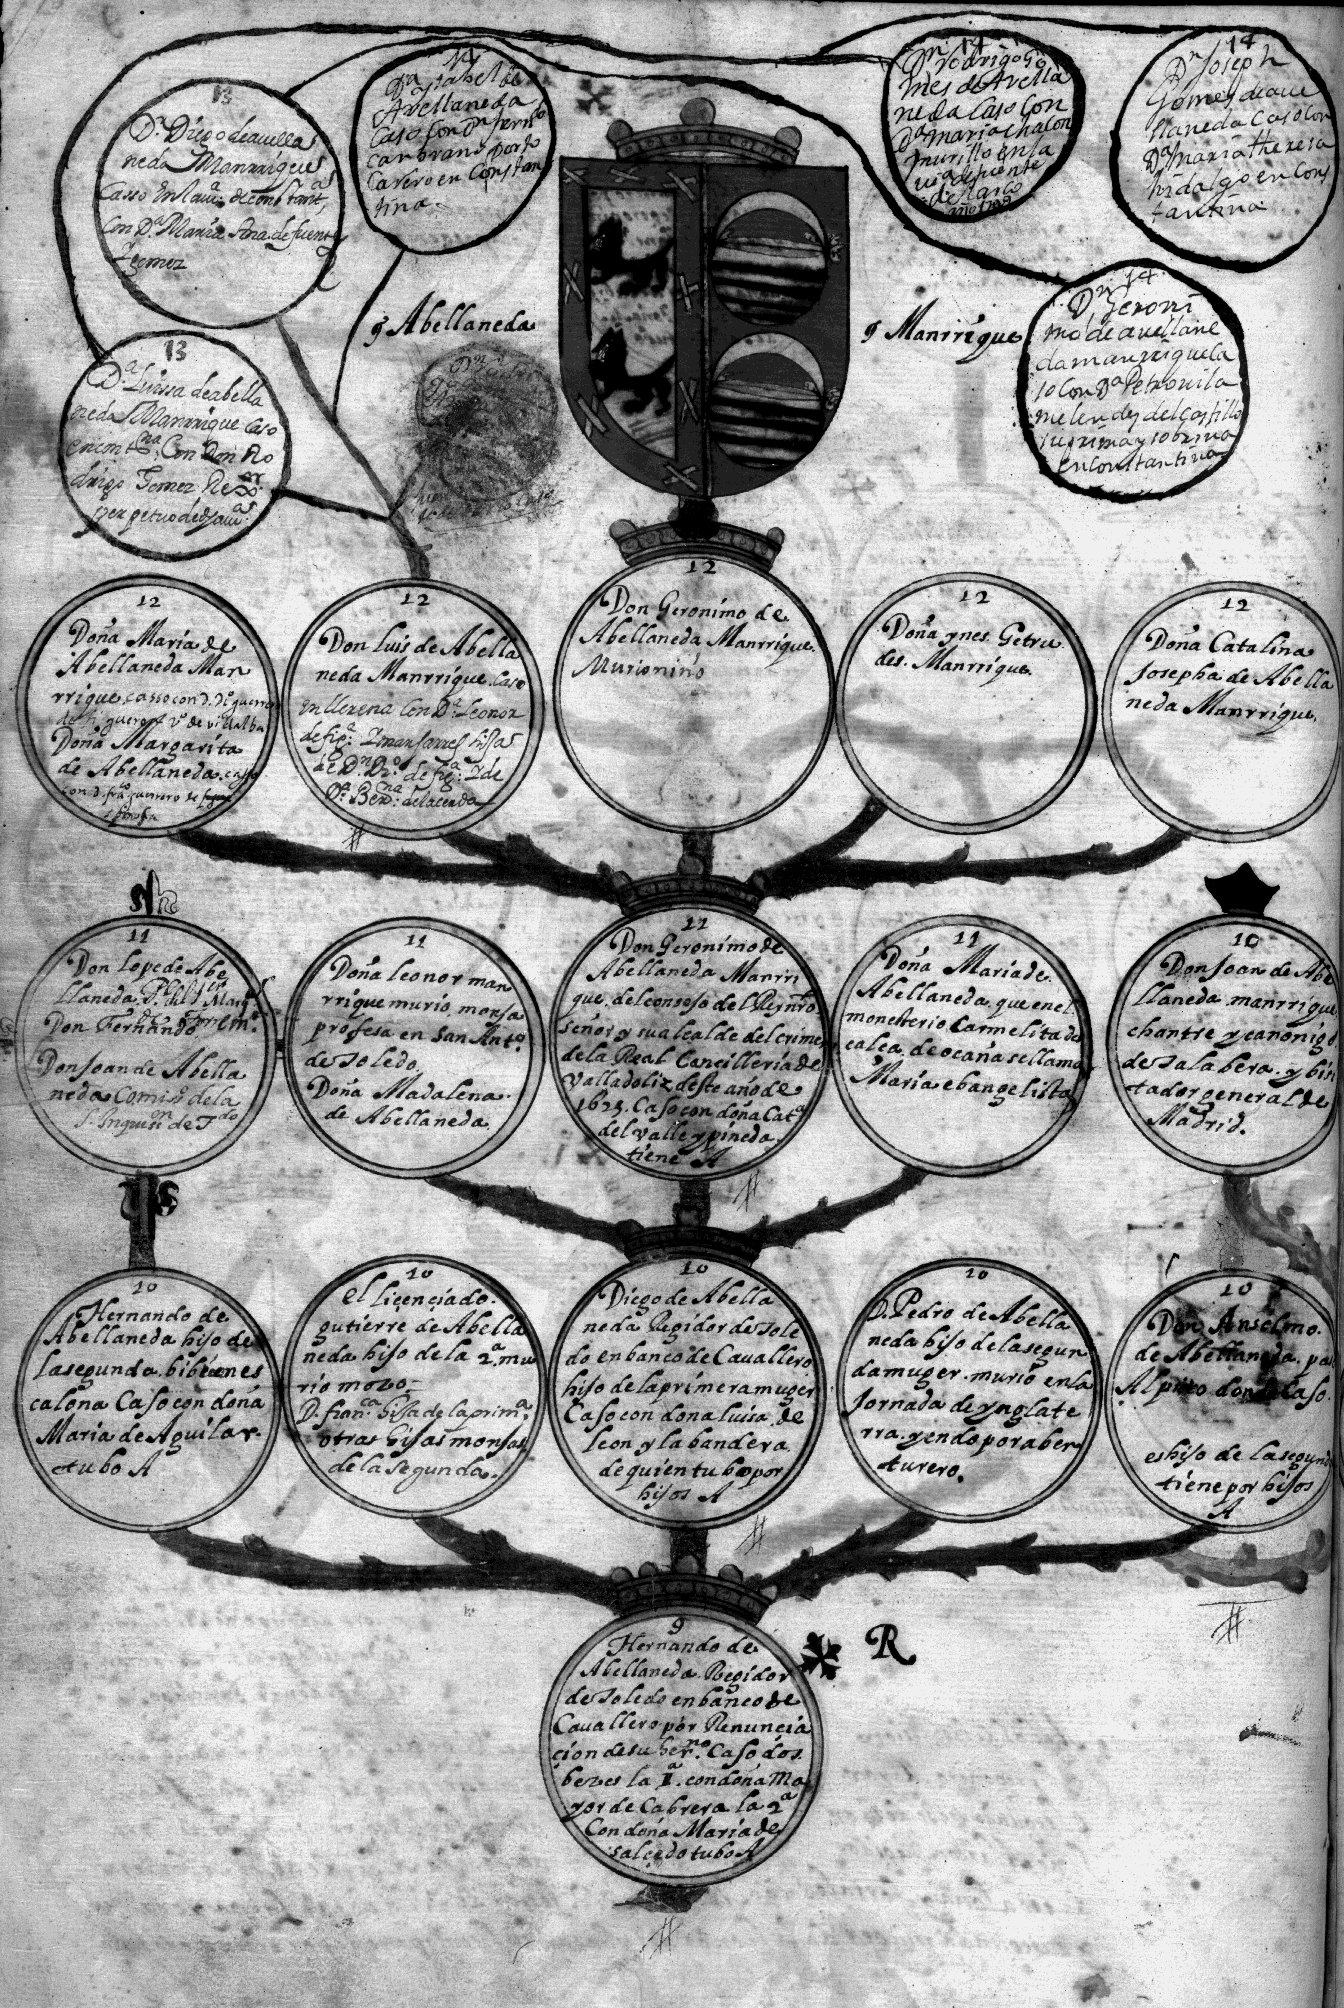 13
Dn. Diego de avella
neda Manrrique
Casso En la vª. de Constantª,
Con Dª. Maria Ana. de fuentes
Y gomez
14
Dª ysabel de
Avellaneda
Caso Con Dn
en Constan
tina.
14
Dn Rodrigo Go
mes de Avella
neda Caso Con
Dª maria Chacon
murillo en la
de fuente
14
Dn Joseph
Gomes de ave
llaneda Caso Con
Dª maria theresa
hidalgo en Cons
tantina
14
Dn Geroni
mo de avellane
da manrrique ca
so Con Dª Petronila
melendez del Castillo
su prima y sobrina
en Constantina
g Abellaneda
g Manrrique
13
Dª. Luissa de abella
neda Manrrique Caso
Con Don Ro
drigo Gomez
perpetuo de
12
Doña Maria de
Abellaneda Man
rrique casso con D. Dº. guerrero
de vº de villalba
Doña Margarita
de Abellaneda. caso
con D. franco guerrero de
12
Don luis de Abella
neda Manrrique. Caso
en llerena Con Dª. Leonor
de figª. hija
de Dn. de figª. y de
Dª. de la cerda
12
Don Geronimo de
Abellaneda Manrrique.
Murio niño
12
Doña ynes. Getru
des. Manrrique.
12
Doña Catalina
Josepha de Abella
neda Manrrique,
11
Don lope de Abe
llaneda.
Don Fernando
Don Joan de Abella
neda Comisº de la
Sª. Inquisión de Tdo
11
Doña leonor man
rrique murio monja
profesa en san Antº.
de Toledo.
Doña Madalena.
de Abellaneda.
11
Don Geronimo de
Abellaneda Manrri
que. del consejo del Rey nro
señor y su alcalde del crimen
de la Real Cancilleria de
Valladoliz deste año de
1625. Caso con doña Catª
del valle y pineda.
tiene A
11
Doña Maria de.
Abellaneda. que en el
monesterio Carmelita des
calça. de ocaña se llama
Maria ebangelista
10
Don Joan de Abe
llaneda manrrique
chantre y canonigo
de Talabera. y bisi
tador general de
Madrid.
10
Hernando de
Abellaneda hijo de
la segunda. bibe en es
calona Caso con doña
Maria de Aguilar.
tubo A
10
el Licenciado.
gutierre de Abella
neda hijo de la 2ª. mu
rio moço –
D. franca. hija de la primª.
otras hijas monjas.
de la segunda.
10
Diego de Abella
neda Regidor de Tole
do en banco de Cavallero
hijo de la primera muger
Caso con doña luisa. de
leon y la bandera.
de quien tubo por
hijos A
10
D. Pedro de Abella
neda hijo de la segun
da muger. murio en la
Jornada de ynglate
rra. yendo por aben
turero.
10
Don Anselmo.
de Abellaneda. pa
donde Caso.
es hijo de la segunda
tiene por hijos
A
9
Hernando de
Abellaneda. Regidor
de Toledo en banco de
Cavallero por Renuncia
cion de su herno. Caso dos.
bezes la 1ª. con doña Ma
yor de Cabrera la 2ª
Con doña Maria de
salcedo tubo A
R